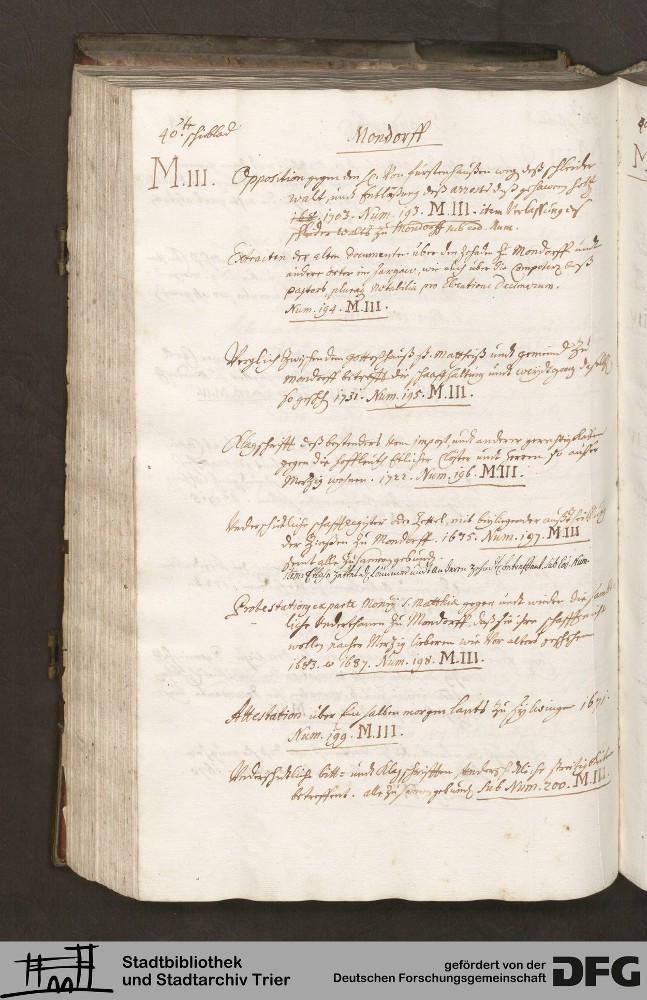 40te schublad
Mondorff
M.III. Opposition gegen den H. von fürstenhaußen weg. deß schleider
walt, undt Entlaßung deß arresti deß gehawen holtz
1703. Num. 193. M.III. item Verlaßung des
schleider walts zu Mondorff sub eod. Num.
Extracten der alten documenten über den Zehnden zu Mondorff undt
andere örter im sargaw, wie auch über die Competenz deß
pastors, plura notabilia pro Decimarum.
Num. 194. M.III.
Verglich zwischen dem gotteßhauß St. Mattheiß undt gemeind zu
Mondorff betrefft die schaaffhaltung undt weydtgang daselbst
so geschehen 1731. Num. 195. M.III.
Klagschrifft deß bestenders vom impost, undt anderer gerechtigkeiten
gegen die hoffleuth etlicher Clöster undt herren so außer
Mertzig wohnen. 1722. Num. 196. M.III.
Underschiedliche schafftregister oder Zettel, mit beyliegender außtheillung
der Zinßen zu Mondorff. 1675. Num. 197. M.III
seint alle zusamengebundt.
item sub eod. Num.
Protestation ex parte Monrii S. Matthiae gegen undt wieder die sambt-
liche Underthanen zu Mondorff, daß sie ihre schafftfrucht
wollen nacher Mertzig lieberen wie vor alters geschehen
1683. et 1687. Num. 198. M.III.
Attestation über Ein halben morgen landts zu hylwingen 1671.
Num. 199. M.III.
Underschiedliche bitt- undt Klagschrifften, underschiedliche streitigkeiten
betreffent. alle zusamengebundt, sub Num. 200. M.III.
M
Stadtbibliothek
und Stadtarchiv Trier
gefördert von der
Deutschen Forschungsgemeinschaft
DFG